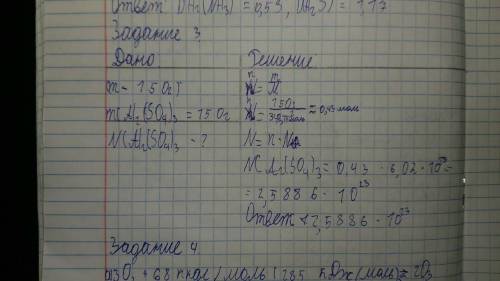 Ответ DAr(NH3) = 0,59, D(A2S) = 1,17
Задание 3.
Дано:
Решение
m = 150г
m(Al2(SO4)3 = 150г
N(Al2(SO4)3 - ?
n = m/M
n = 150г / 342г/моль = 0,43 моль
N = n · Na
N(Al2(SO4)3 = 0,43 · 6,02 · 10^23 =
= 2,5886 · 10^23
Ответ: 2,5886 · 10^23
Задание 4.
3O2 + 68 ккал/моль (285 кДж/моль) = 2O3